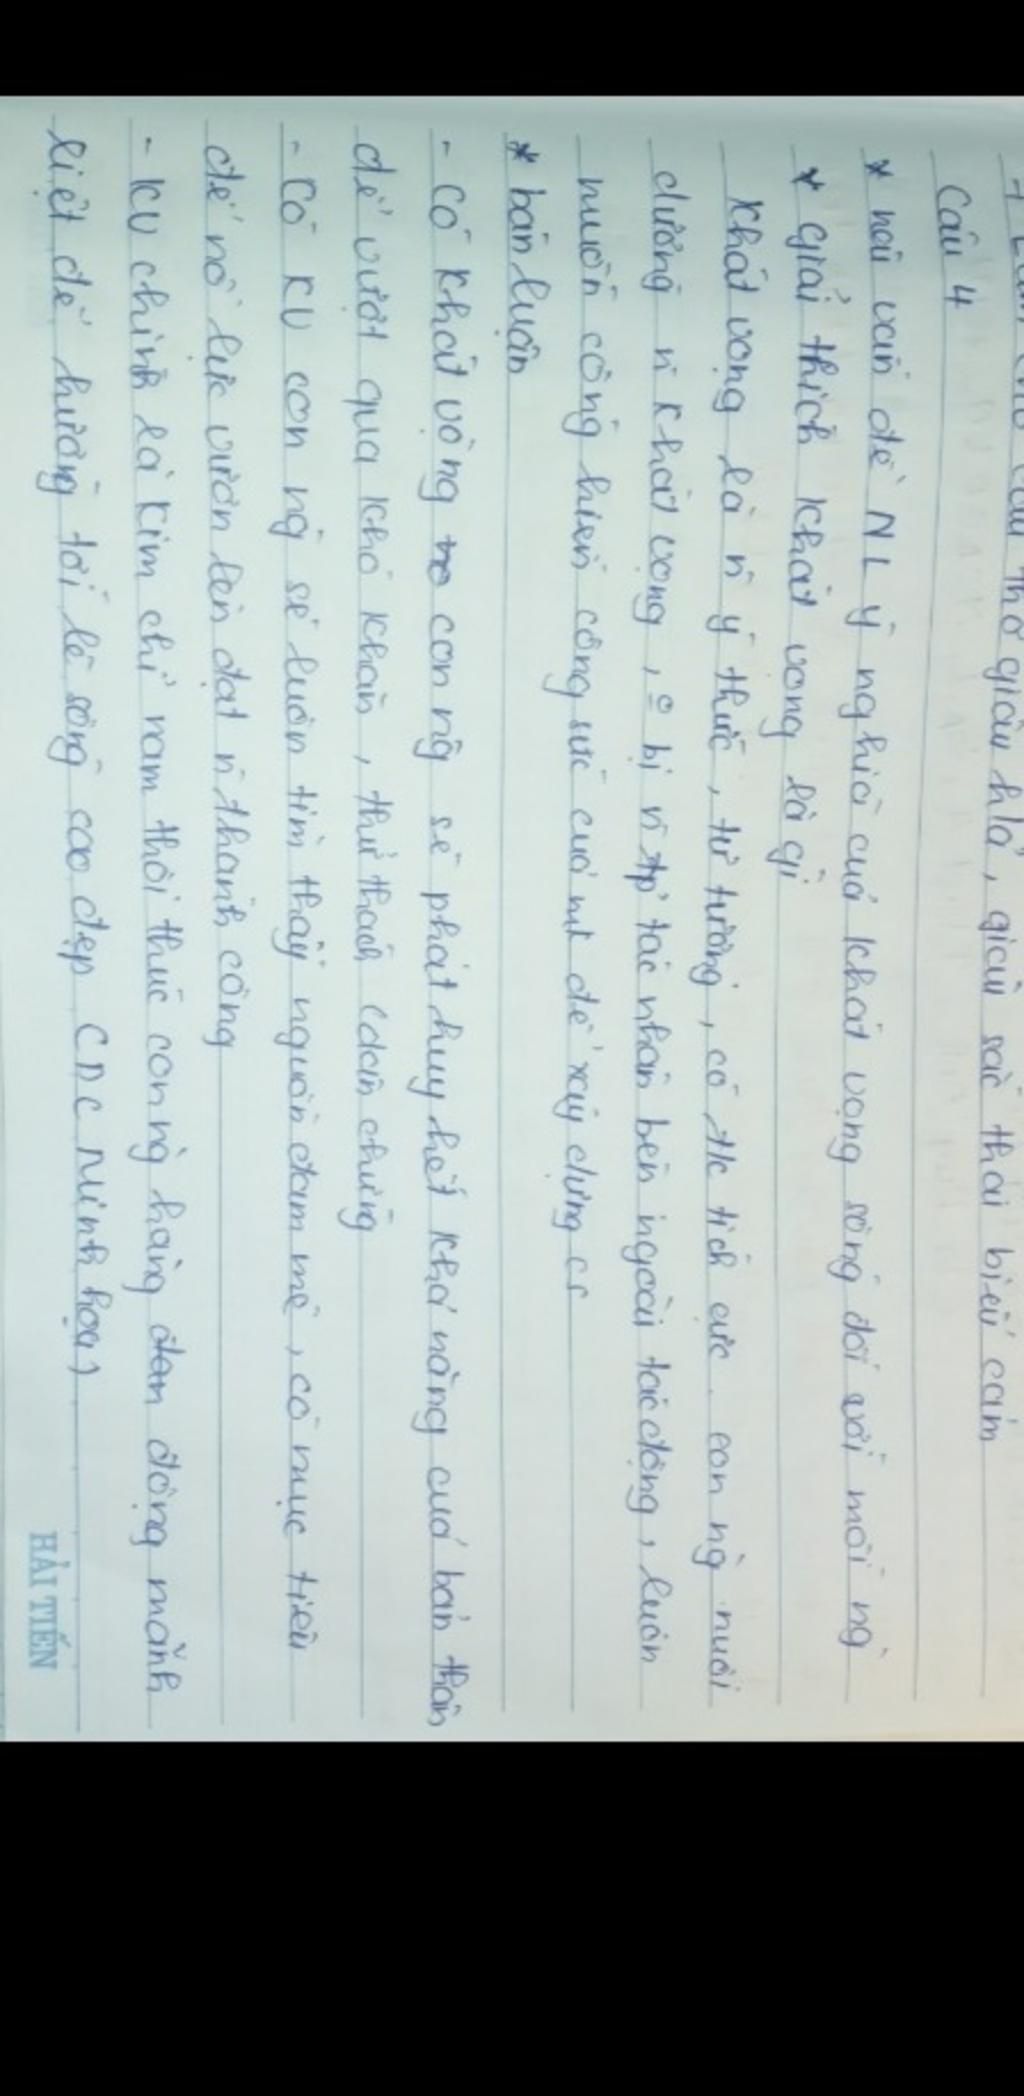 giàu h/ả, giàu sắc thái biểu cảm
Câu 4
* nêu vấn đề NL ý nghĩa của khát vọng sống đối với mỗi ng
* giải thích khát vọng là gì
Khát vọng là n ý thức, tư tưởng, có tc tích cực. con ng nuôi
dưỡng n khát vọng, bị n tác nhân bên ngoài tác động, luôn
muốn cống hiến công sức của mk để xây dựng cs
* bàn luận
- Có khát vọng con ng sẽ phát huy hết khả năng của bản thân
để vượt qua khó khăn, thử thách (dẫn chứng
- Có KV con ng sẽ luôn tìm thấy nguồn đam mê, có mục tiêu
để nỗ lực vươn lên đạt n thành công
- KV chính là kim chỉ nam thôi thúc con ng hành động mãnh
liệt để hướng tới lẽ sống cao đẹp (DC Minh họa)
HẢI TIẾN